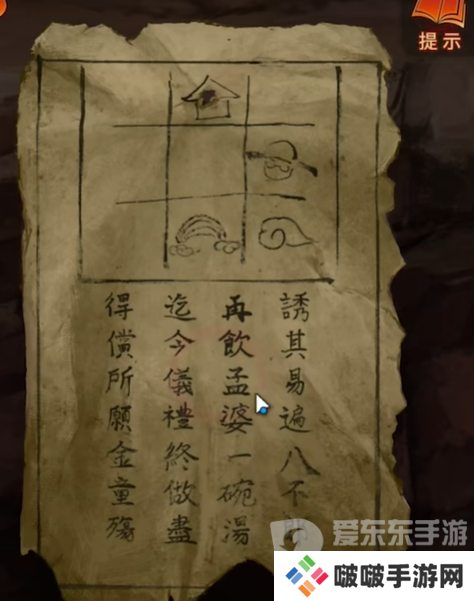 提示
誘其易遍八不
再飲孟婆一碗湯
迄今儀禮終做盡
得償所願金童殤
爱东东手游
啵啵手游网